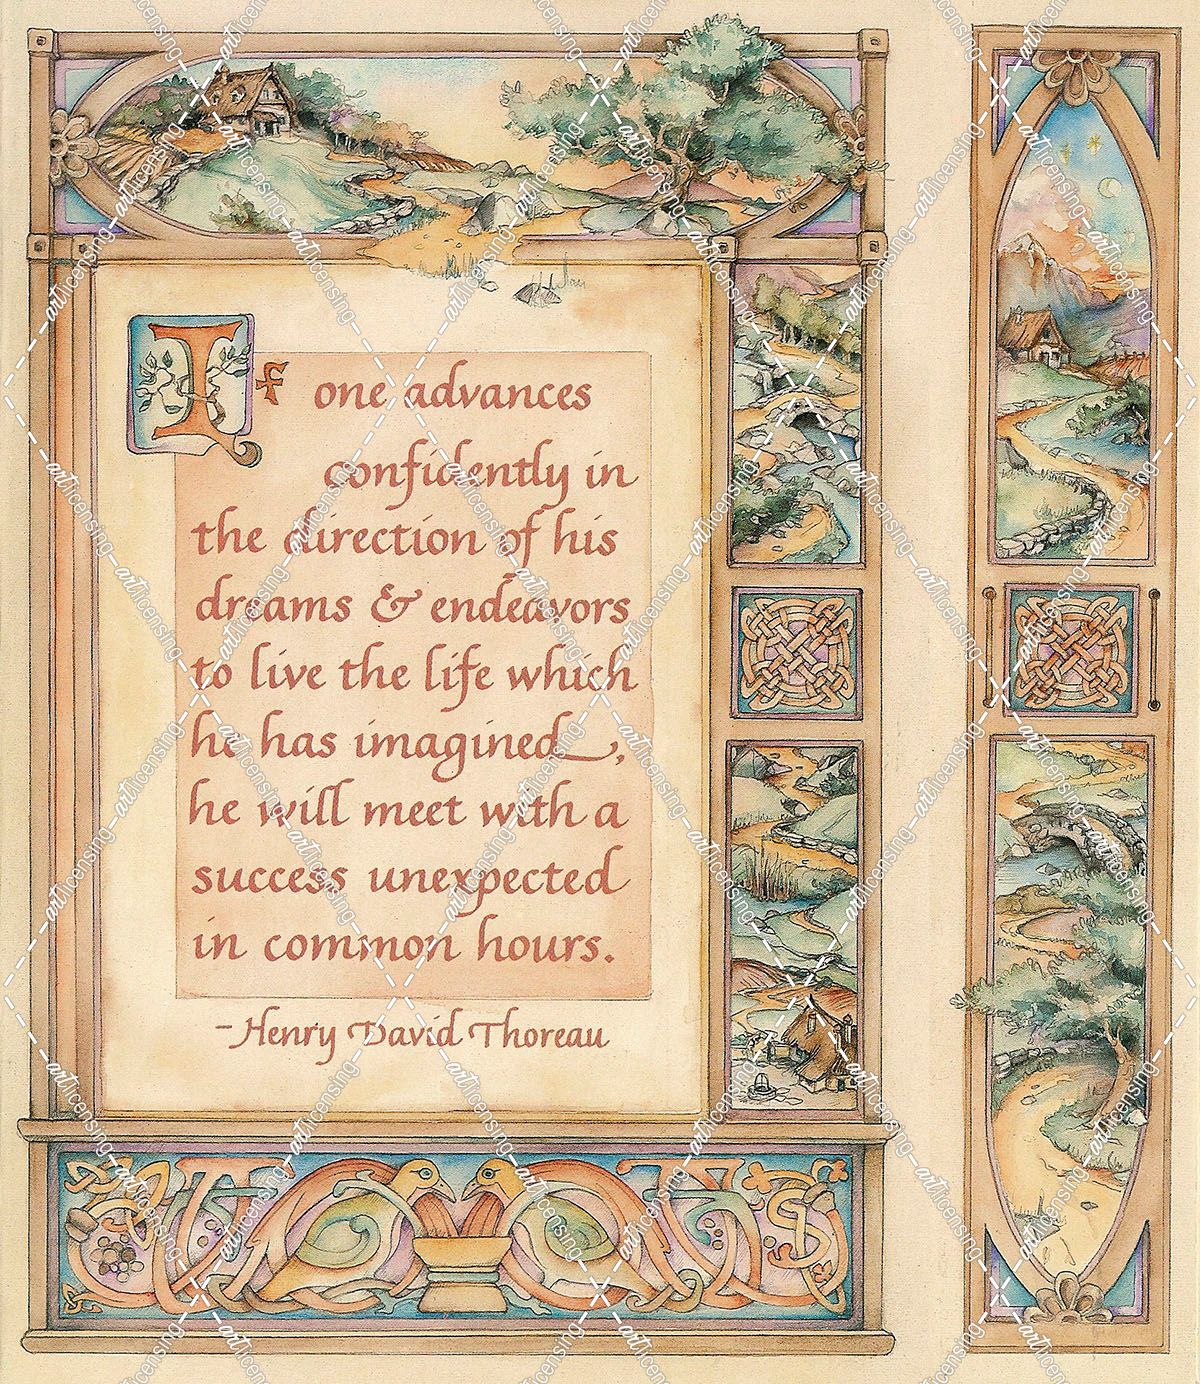 If one advances
confidently in
the direction of his
dreams & endeavors
to live the life which
he has imagined,
he will meet with a
success unexpected
in common hours.
-Henry David Thoreau
art licensing